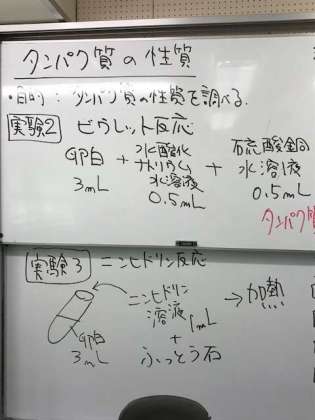 タンパク質の性質
・目的：タンパク質の性質を調べる.
実験2 ビウレット反応
卵白 + 水酸化ナトリウム水溶液 + 硫酸銅水溶液
3mL 0.5mL 0.5mL
タンパク質
実験3 ニンヒドリン反応
ニンヒドリン溶液 1mL → 加熱
+
ふっとう石
卵白
3mL